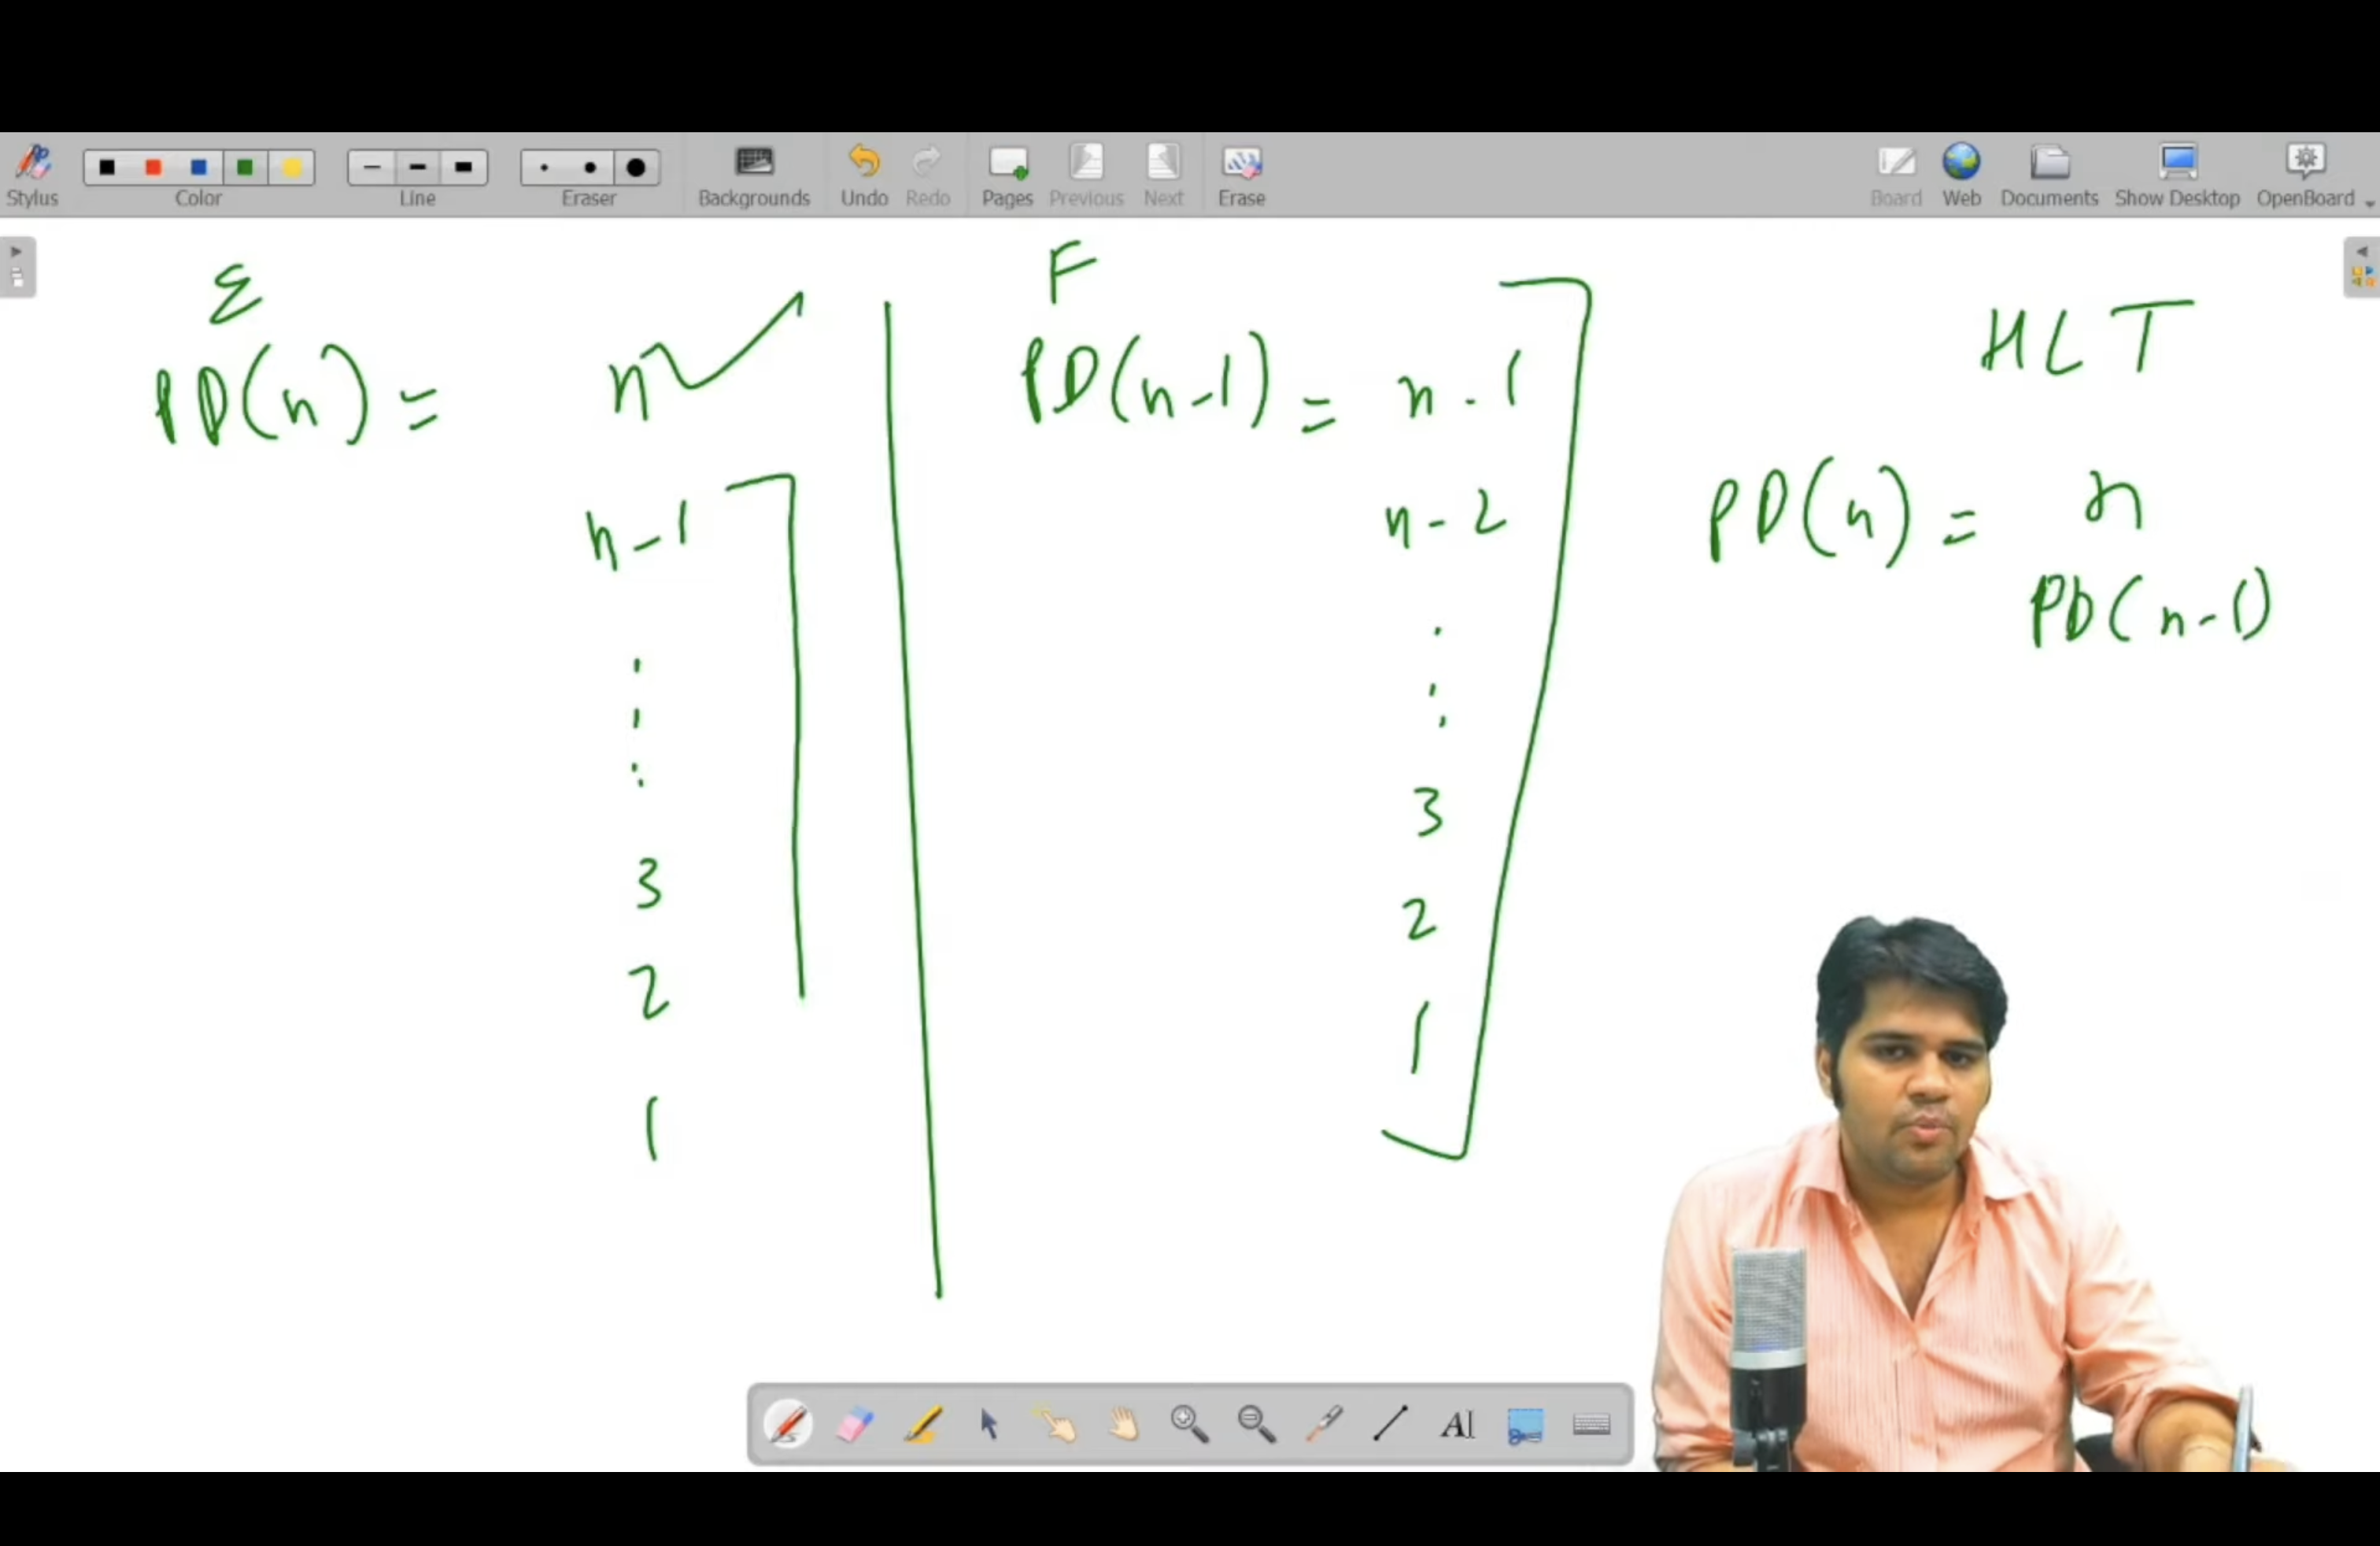 Stylus Color Line Eraser Backgrounds Undo Redo Pages Previous Next Erase Board Web Documents Show Desktop OpenBoard
E
PD(n) = n
n-1
.
.
.
3
2
1
F
PD(n-1) = n-1
n-2
.
.
.
3
2
1
HLT
PD(n) = n
PD(n-1)
AI